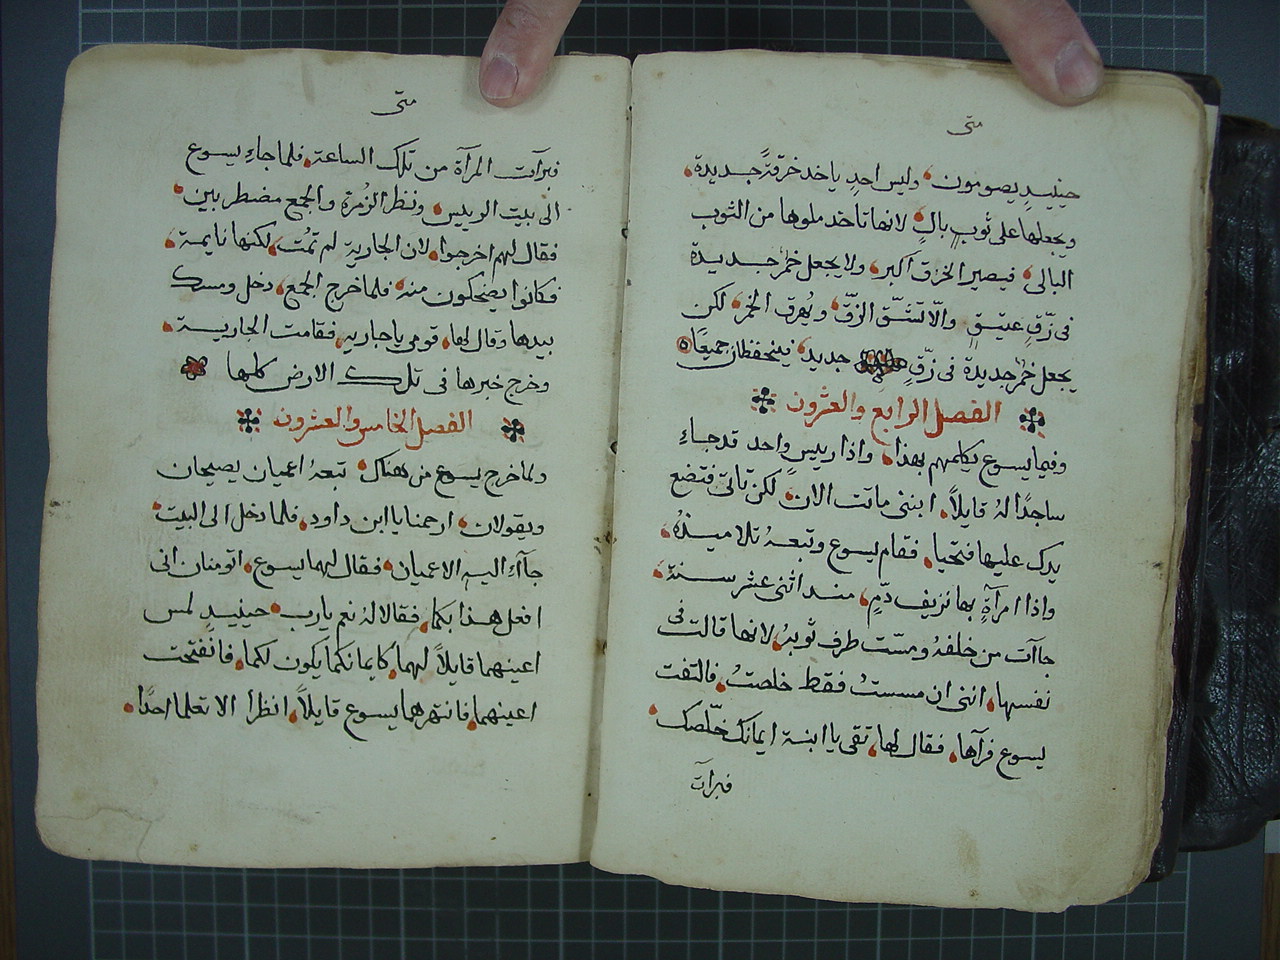 متى
حينيدٍ يصومون، وليس احدٍ ياخد خرقةً جديدة،
ويجعلها على ثوبٍ بالٍ لانها تاخد ملوها من الثوب
البالى، فيصير الخرق اكبر، ولا يجعل خمر جديدة
فى زقٍ عتيقٍ والّا تنشق الزقّ، ويُهرق الخمر، لكن
يجعل خمر جديدة فى زقٍ جديد، فينحفظان جميعًا
الفصل الرابع والعشرون
وفيما يسوع يكلمهم بهذا، واذا رييسٍ واحد قد جاءِ
ساجدًا لهُ قايلاً، ابنتى ماتت الان، لكن تاتى فتضع
يدك عليها فتحيا، فقام يسوع وتبعهُ تلاميذهُ،
واذا امرآةٍ بها نزيف دّمٍ، مند اثنى عشر سنة،
جاآت من خلفهُ ومسّت طرف ثوبهُ، لانها قالت فى
نفسها، اننى ان مسستُ فقط خلصتُ، فالتفت
يسوع فرآها، فقال لها، تقى يا ابنة ايمانك خلّصك،
فبرآت
متى
فبرآت المرآة من تلك الساعة، فلما جاءِ يسوع
الى بيت الرييس، ونظر الزُمرة والجمع مضطربين،
فقال لهم اخرجوا، لان الجارية لم تمُت، لكنها نايمة،
فكانوا يضحكون منه، فلما خرج الجمع، دخل ومسك
بيدها وقال لها، قومى يا جاريه، فقامت الجارية،
وخرج خبرها فى تلك الارض كلها
الفصل الخامس والعشرون
ولما خرج يسوع من هناك، تبعهُ اعميان يصيحان
ويقولان، ارحمنا يا ابن داود، فلما دخل الى البيت،
جآءِ اليه الاعميان، فقال لهما يسوع، اتومنان انى
افعل هذا بكما، فقالا لهُ نعم يارب، حينيدٍ لمس
اعينهما قايلاً لهما، كايمانكما يكون لكما، فانفتحت
اعينهما، فانتهرهما يسوع قايلاً، انظرا الا تعلما احدًا،